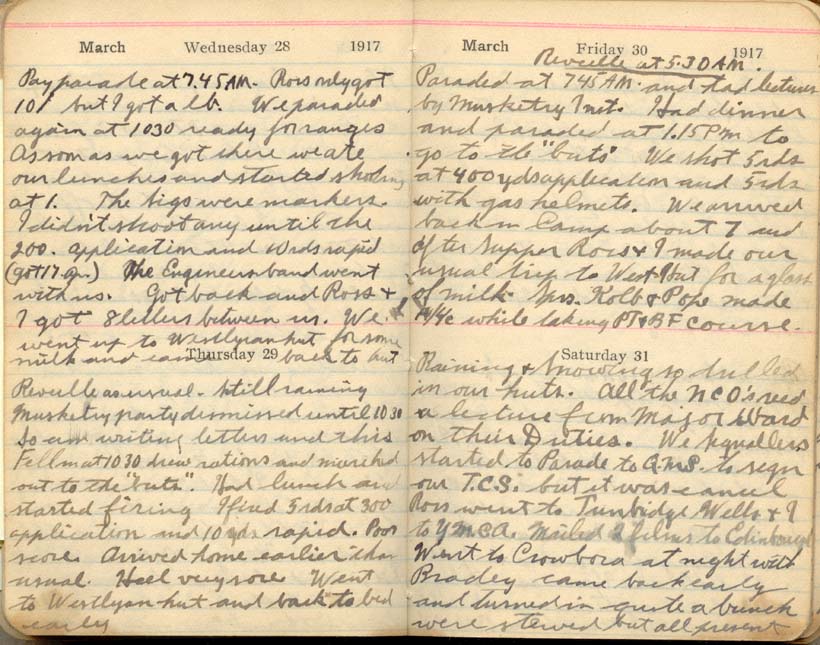 March Wednesday 28 1917
Pay parade at 7.45 AM. Ross only got
10/ but I got a lb. We paraded
again at 1030 ready for ranges
As soon as we got there we ate
our lunches and started shooting
at 1. The sigs were markers.
I didn't shoot any until the
200. application and 10 rds rapid
(got 17. gr.) The Engineers band went
with us. Got back and Ross &
I got 8 letters between us. We
went up to Westlyan hut for some
milk and came back to hut
Thursday 29
Reveille as usual. Still raining
Musketry party dismissed until 1030
So am writing letters and this
Fell in at 1030 drew rations and marched
out to the "buts". Had lunch and
started firing I fired 5 rds at 300
application and 10 rds rapid. Poor
score. Arrived home earlier than
usual. Heel very sore Went
to Westlyan hut and back to bed
early
March Friday 30 1917
Reveille at 5.30 AM.
Paraded at 745 AM. and had lectures
by Musketry Inst. Had dinner
and paraded at 1.15 Pm to
go to the "buts" We shot 5 rds
at 400 yds application and 5 rds
with gas helmets. We arrived
back in Camp about 7 and
after supper Ross & I made our
usual trip to West. hut for a glass
of milk. Kolb & Pope made
while taking PT & BF course.
Saturday 31
Raining & snowing so drilled
in our huts. All the NCO's recd
a lecture from Major Ward
on their Duties. We signallers
started to Parade to Q.M.S. to sign
our T.C.S. but it was cancel
Ross went to Tunbridge Wells & I
to YMCA. Mailed 2 films to Edinburgh
Went to Crowboro at night with
Bradley came back early
and turned in quite a bunch
were stewed but all present